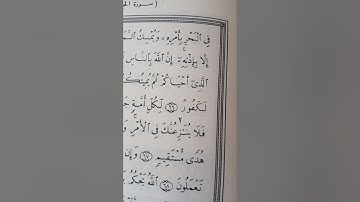 (سورة
فِى ٱلْبَحْرِ بِأَمْرِهِۦ وَيُمْسِكُ
إِلَّا بِإِذْنِهِۦٓ ۗ إِنَّ ٱللَّهَ بِٱلنَّاسِ
ٱلَّذِىٓ أَحْيَاكُمْ ثُمَّ يُمِيتُكُمْ
لَكَفُورٌ ٦٦ لِّكُلِّ أُمَّةٍ
فَلَا يُنَٰزِعُنَّكَ فِى ٱلْأَمْرِ ۚ
هُدًى مُّسْتَقِيمٍ ٦٧ وَإِن
تَعْمَلُونَ ٦٨ ٱللَّهُ يَحْكُمُ